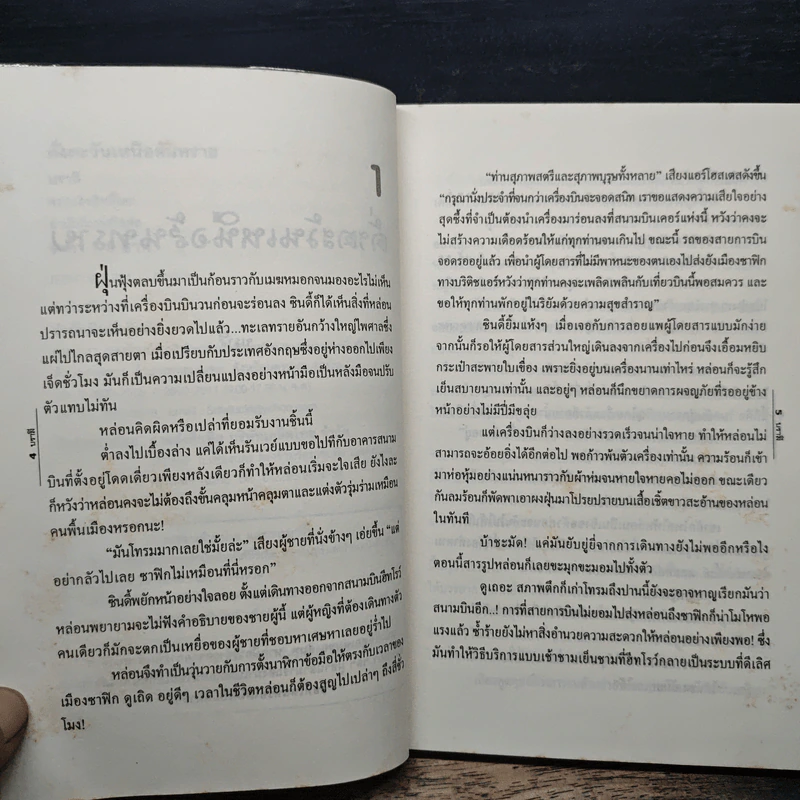 1
ฝุ่นฟุ้งตลบขึ้นมาเป็นก้อนราวกับเมฆหมอกจนมองอะไรไม่เห็น
แต่ทว่าระหว่างที่เครื่องบินบินวนก่อนจะร่อนลง ซินดี้ก็ได้เห็นสิ่งที่หล่อน
ปรารถนาจะเห็นอย่างยิ่งยวดไปแล้ว...ทะเลทรายอันกว้างใหญ่ไพศาลซึ่ง
แผ่ไปไกลสุดสายตา เมื่อเปรียบกับประเทศอังกฤษซึ่งอยู่ห่างออกไปเพียง
เจ็ดชั่วโมง มันก็เป็นความเปลี่ยนแปลงอย่างหน้ามือเป็นหลังมือจนปรับ
ตัวแทบไม่ทัน
หล่อนคิดผิดหรือเปล่าที่ยอมรับงานชิ้นนี้
ต่ำลงไปเบื้องล่าง แค่ได้เห็นรันเวย์แบบขอไปทีกับอาคารสนาม
บินที่ตั้งอยู่โดดเดี่ยวเพียงหลังเดียวก็ทำให้หล่อนเริ่มจะใจเสีย ยังไงละ
ก็หวังว่าหล่อนคงจะไม่ต้องถึงขั้นคลุมหน้าคลุมตาและแต่งตัวรุ่มร่ามเหมือน
คนพื้นเมืองหรอกนะ!
“มันโทรมมากเลยใช่มั้ยล่ะ” เสียงผู้ชายที่นั่งข้างๆ เอ่ยขึ้น “แต่
อย่ากลัวไปเลย ซาฟิกไม่เหมือนที่นี่หรอก”
ซินดี้พยักหน้าอย่างใจลอย ตั้งแต่เดินทางออกจากสนามบินฮีทโรว์
หล่อนพยายามจะไม่ฟังคำอธิบายของชายผู้นี้ แต่ผู้หญิงที่ต้องเดินทางตัว
คนเดียวก็มักจะตกเป็นเหยื่อของผู้ชายที่ชอบหาเศษหาเลยอยู่ร่ำไป
หล่อนจึงทำเป็นวุ่นวายกับการตั้งนาฬิกาข้อมือให้ตรงกับเวลาของ
เมืองซาฟิก ดูเถิด อยู่ดีๆ เวลาในชีวิตหล่อนก็ต้องสูญไปเปล่าๆ ถึงสี่ชั่ว
โมง!
4 บราลี
“ท่านสุภาพสตรีและสุภาพบุรุษทั้งหลาย” เสียงแอร์โฮสเตสดังขึ้น
“กรุณานั่งประจำที่จนกว่าเครื่องบินจะจอดสนิท เราขอแสดงความเสียใจอย่าง
สุดซึ้งที่จำเป็นต้องนำเครื่องมาร่อนลงที่สนามบินเคอร์แห่งนี้ หวังว่าคงจะ
ไม่สร้างความเดือดร้อนให้แก่ทุกท่านจนเกินไป ขณะนี้ รถของสายการบิน
จอดรออยู่แล้ว เพื่อนำผู้โดยสารที่ไม่มีพาหนะของตนเองไปส่งยังเมืองซาฟิก
ทางบริติชแอร์หวังว่าทุกท่านคงจะเพลิดเพลินกับเที่ยวบินนี้พอสมควร และ
ขอให้ทุกท่านพักอยู่ในริยัมด้วยความสุขสำราญ”
ซินดี้ยิ้มแห้งๆ เมื่อเจอกับการลอยแพผู้โดยสารแบบมักง่าย
จากนั้นก็รอให้ผู้โดยสารส่วนใหญ่เดินลงจากเครื่องไปก่อนจึงเอื้อมหยิบ
กระเป๋าสะพายใบเขื่อง เพราะยิ่งอยู่บนเครื่องนานเท่าไหร่ หล่อนก็จะรู้สึก
เย็นสบายนานเท่านั้น และอยู่ๆ หล่อนก็นึกขยาดการผจญภัยที่รออยู่ข้าง
หน้าอย่างไม่มีปี่มีขลุ่ย
แต่เครื่องบินก็ว่างลงอย่างรวดเร็วจนน่าใจหาย ทำให้หล่อนไม่
สามารถจะอ้อยอิ่งได้อีกต่อไป พอก้าวพ้นตัวเครื่องเท่านั้น ความร้อนก็เข้า
มาห่อหุ้มอย่างแน่นหนาราวกับผ้าห่มจนหายใจหายคอไม่ออก ขณะเดียว
กันลมร้อนก็พัดพาเอาผงฝุ่นมาโปรยปรายบนเสื้อเชิ้ตขาวสะอ้านของหล่อน
ในทันที
บ้าชะมัด! แค่มันยับยู่ยี่จากการเดินทางยังไม่พออีกหรือไง
ตอนนี้สารรูปหล่อนก็เลยขะมุกขะมอมไปทั้งตัว
ดูเถอะ สภาพตึกก็เก่าโทรมถึงปานนี้ยังจะอาจหาญเรียกมันว่า
สนามบินอีก..! การที่สายการบินไม่ยอมไปส่งหล่อนถึงซาฟิกก็น่าโมโหพอ
แรงแล้ว ซ้ำร้ายยังไม่หาสิ่งอำนวยความสะดวกให้หล่อนอย่างเพียงพอ! ซึ่ง
มันทำให้วิธีบริการแบบเช้าชามเย็นชามที่ฮีทโรว์กลายเป็นระบบที่ดีเลิศ
5 บราลี